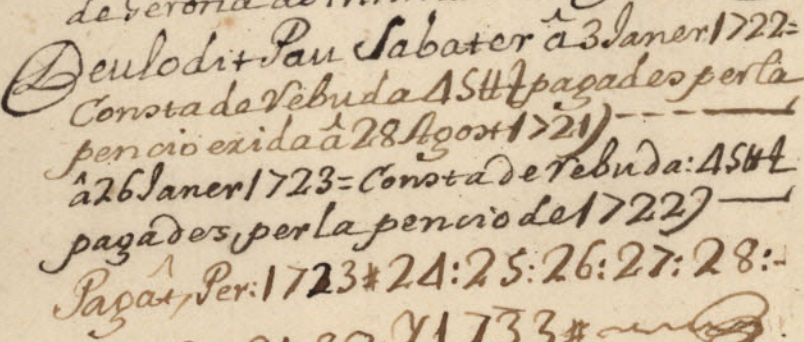 de Gerona
Deu lo dit Pau Sabater â 3 Janer 1722=
Consta de rebuda 45 ℔ pagades per la
pencio exida â 28 Agost 1721) - - - —
â 26 Janer 1723= Consta de rebuda: 45 ℔
pagades, per la pencio de 1722) —
Pagât, Per: 1723 # 24: 25: 26: 27: 28: -
Y 1733 #